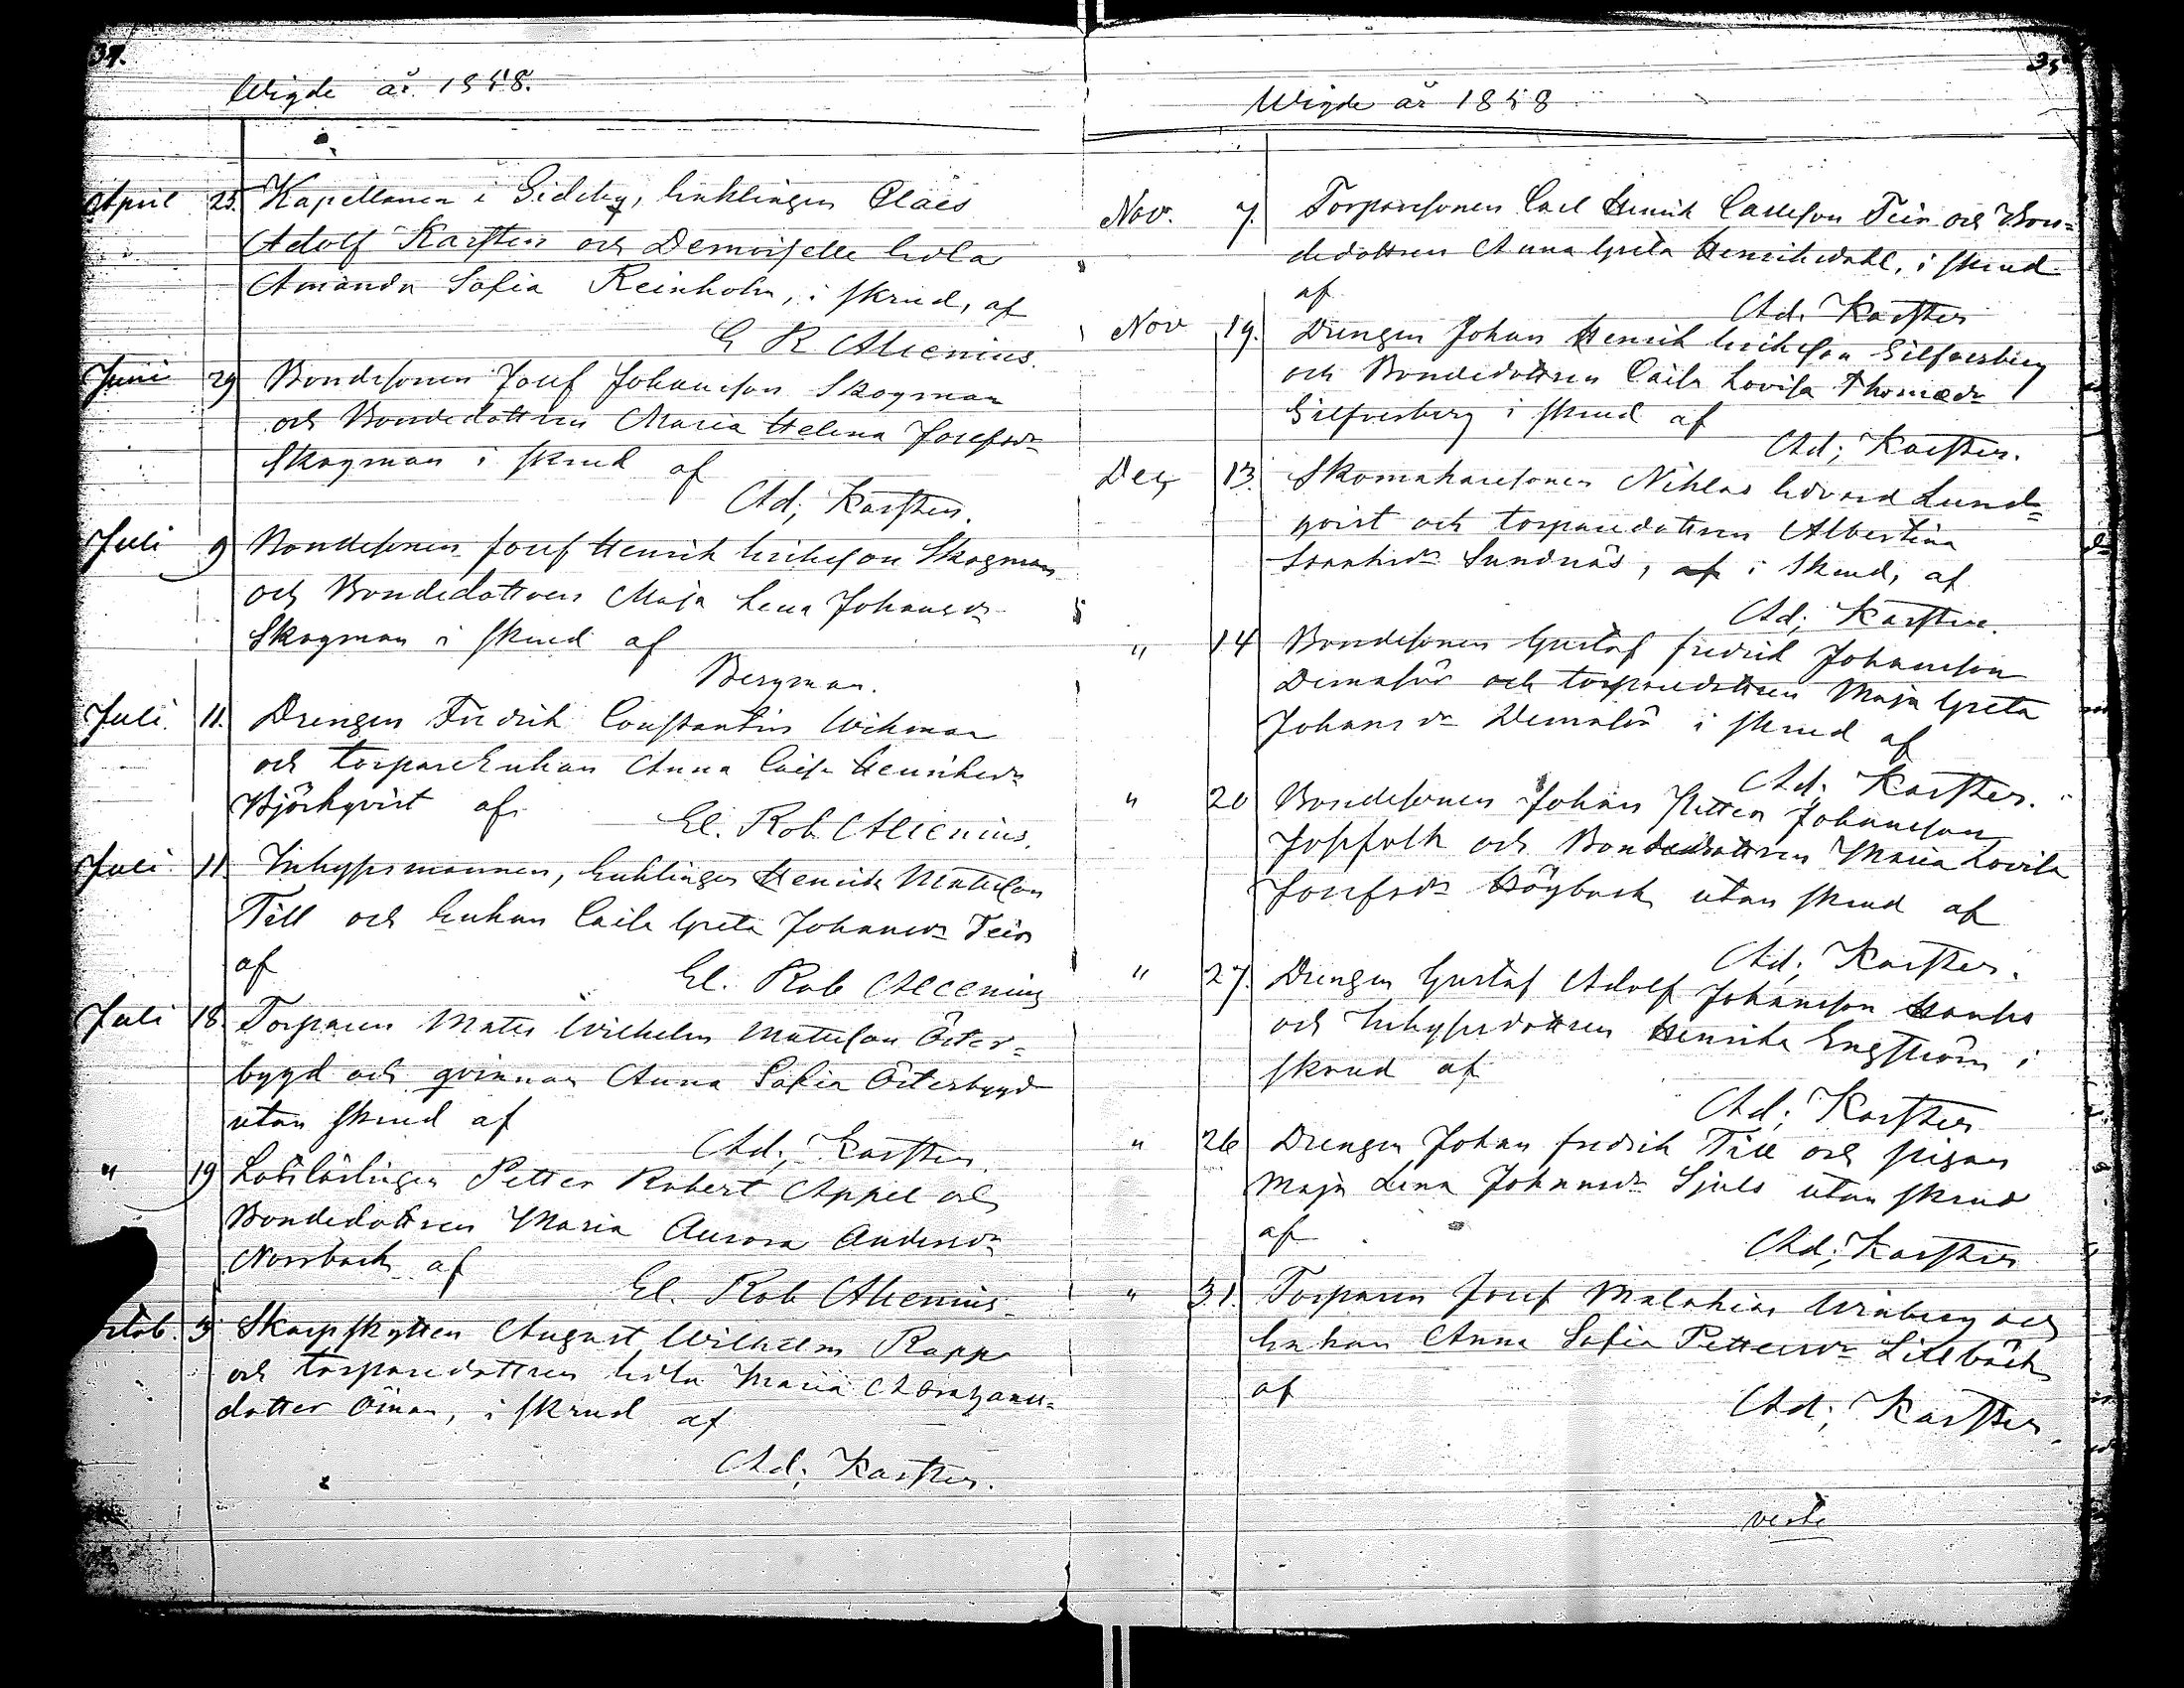 34.
Wigde år 1858.
April 25. Kapellanen i Sideby, Enklingen Claës
Adolf Karsten och Demoiselle Eva
Amanda Sofia Reinholm, i skrud, af
G R Alcenius.
Juni 29 Bondesonen Josef Johansson Skogman
och Bondedottren Maria Helena Josefsdr
Skogman i skrud af
Ad; Karsten.
Juli 9 Bondesonen Josef Henrik Erikson Skogman
och Bondedottren Maja Lena Johansdr
Skogman i skrud af
Bergman.
Juli. 11. Drengen Fredrik Constantin Wikman
och torpareEnkan Anna Caisa Henriksdr
Björkqvist af
El. Rob. Alcenius.
Juli 11 Inhysesmannen, Enklingen Henrik Mattsson
Till och Enkan Caisa Greta Johansdr Teir
af
El. Rob Alcenius
Juli 18. Torparen Matts Wilhelm Mattsson Öster=
bygd och qvinnan Anna Sofia Österbygd
utan skrud af
Ad; Karsten.
" 19 Lotslärlingen Petter Robert Appel och
Bondedottren Maria Aurora Andersdr
Norrback af
El. Rob Alcenius
3 Skarpskytten August Wilhelm Rapp
och torparedottren Maria
dotter Öman, i skrud af
Ad; Karsten.
35
Wigde år 1858
Nov. 7. Torparesonen Carl Henrik Carlsson Teir och Bon=
dedottren Anna Greta Henriksdahl, i skrud
af
Ad. Karsten
Nov 19. Drengen Johan Henrik Erikson Silfversberg
och Bondedottren Caisa Lovisa Thomædr
Silfversberg i skrud af
Ad; Karsten.
Dec 13. Skomakaresonen Niklas Edvard Lund=
qvist och torparedottren Albertina
Sundnäs, af i skrud, af
Ad; Karsten.
" 14 Bondesonen Gustaf Fredrik Johansson
och torparedottren Maja Greta
Johansdr i skrud af
Ad; Karsten.
" 20 Bondesonen Johan Petter Johansson
Josfolk och Bondedottren Maria Lovisa
Josefsdr Högback utan skrud af
Ad; Karsten.
" 27. Drengen Gustaf Adolf Johansson
och Inhysesdottren Henrika Engström i
skrud af
Ad; Karsten
" 26 Drengen Johan Fredrik Till och pigan
Maja Lena Johansdr Sjuls utan skrud
af
Ad; Karsten
" 31. Torparen Josef Malakias Winberg och
Enkan Anna Sofia Pettersdr Lillbäck
af
Ad; Karsten.
verte